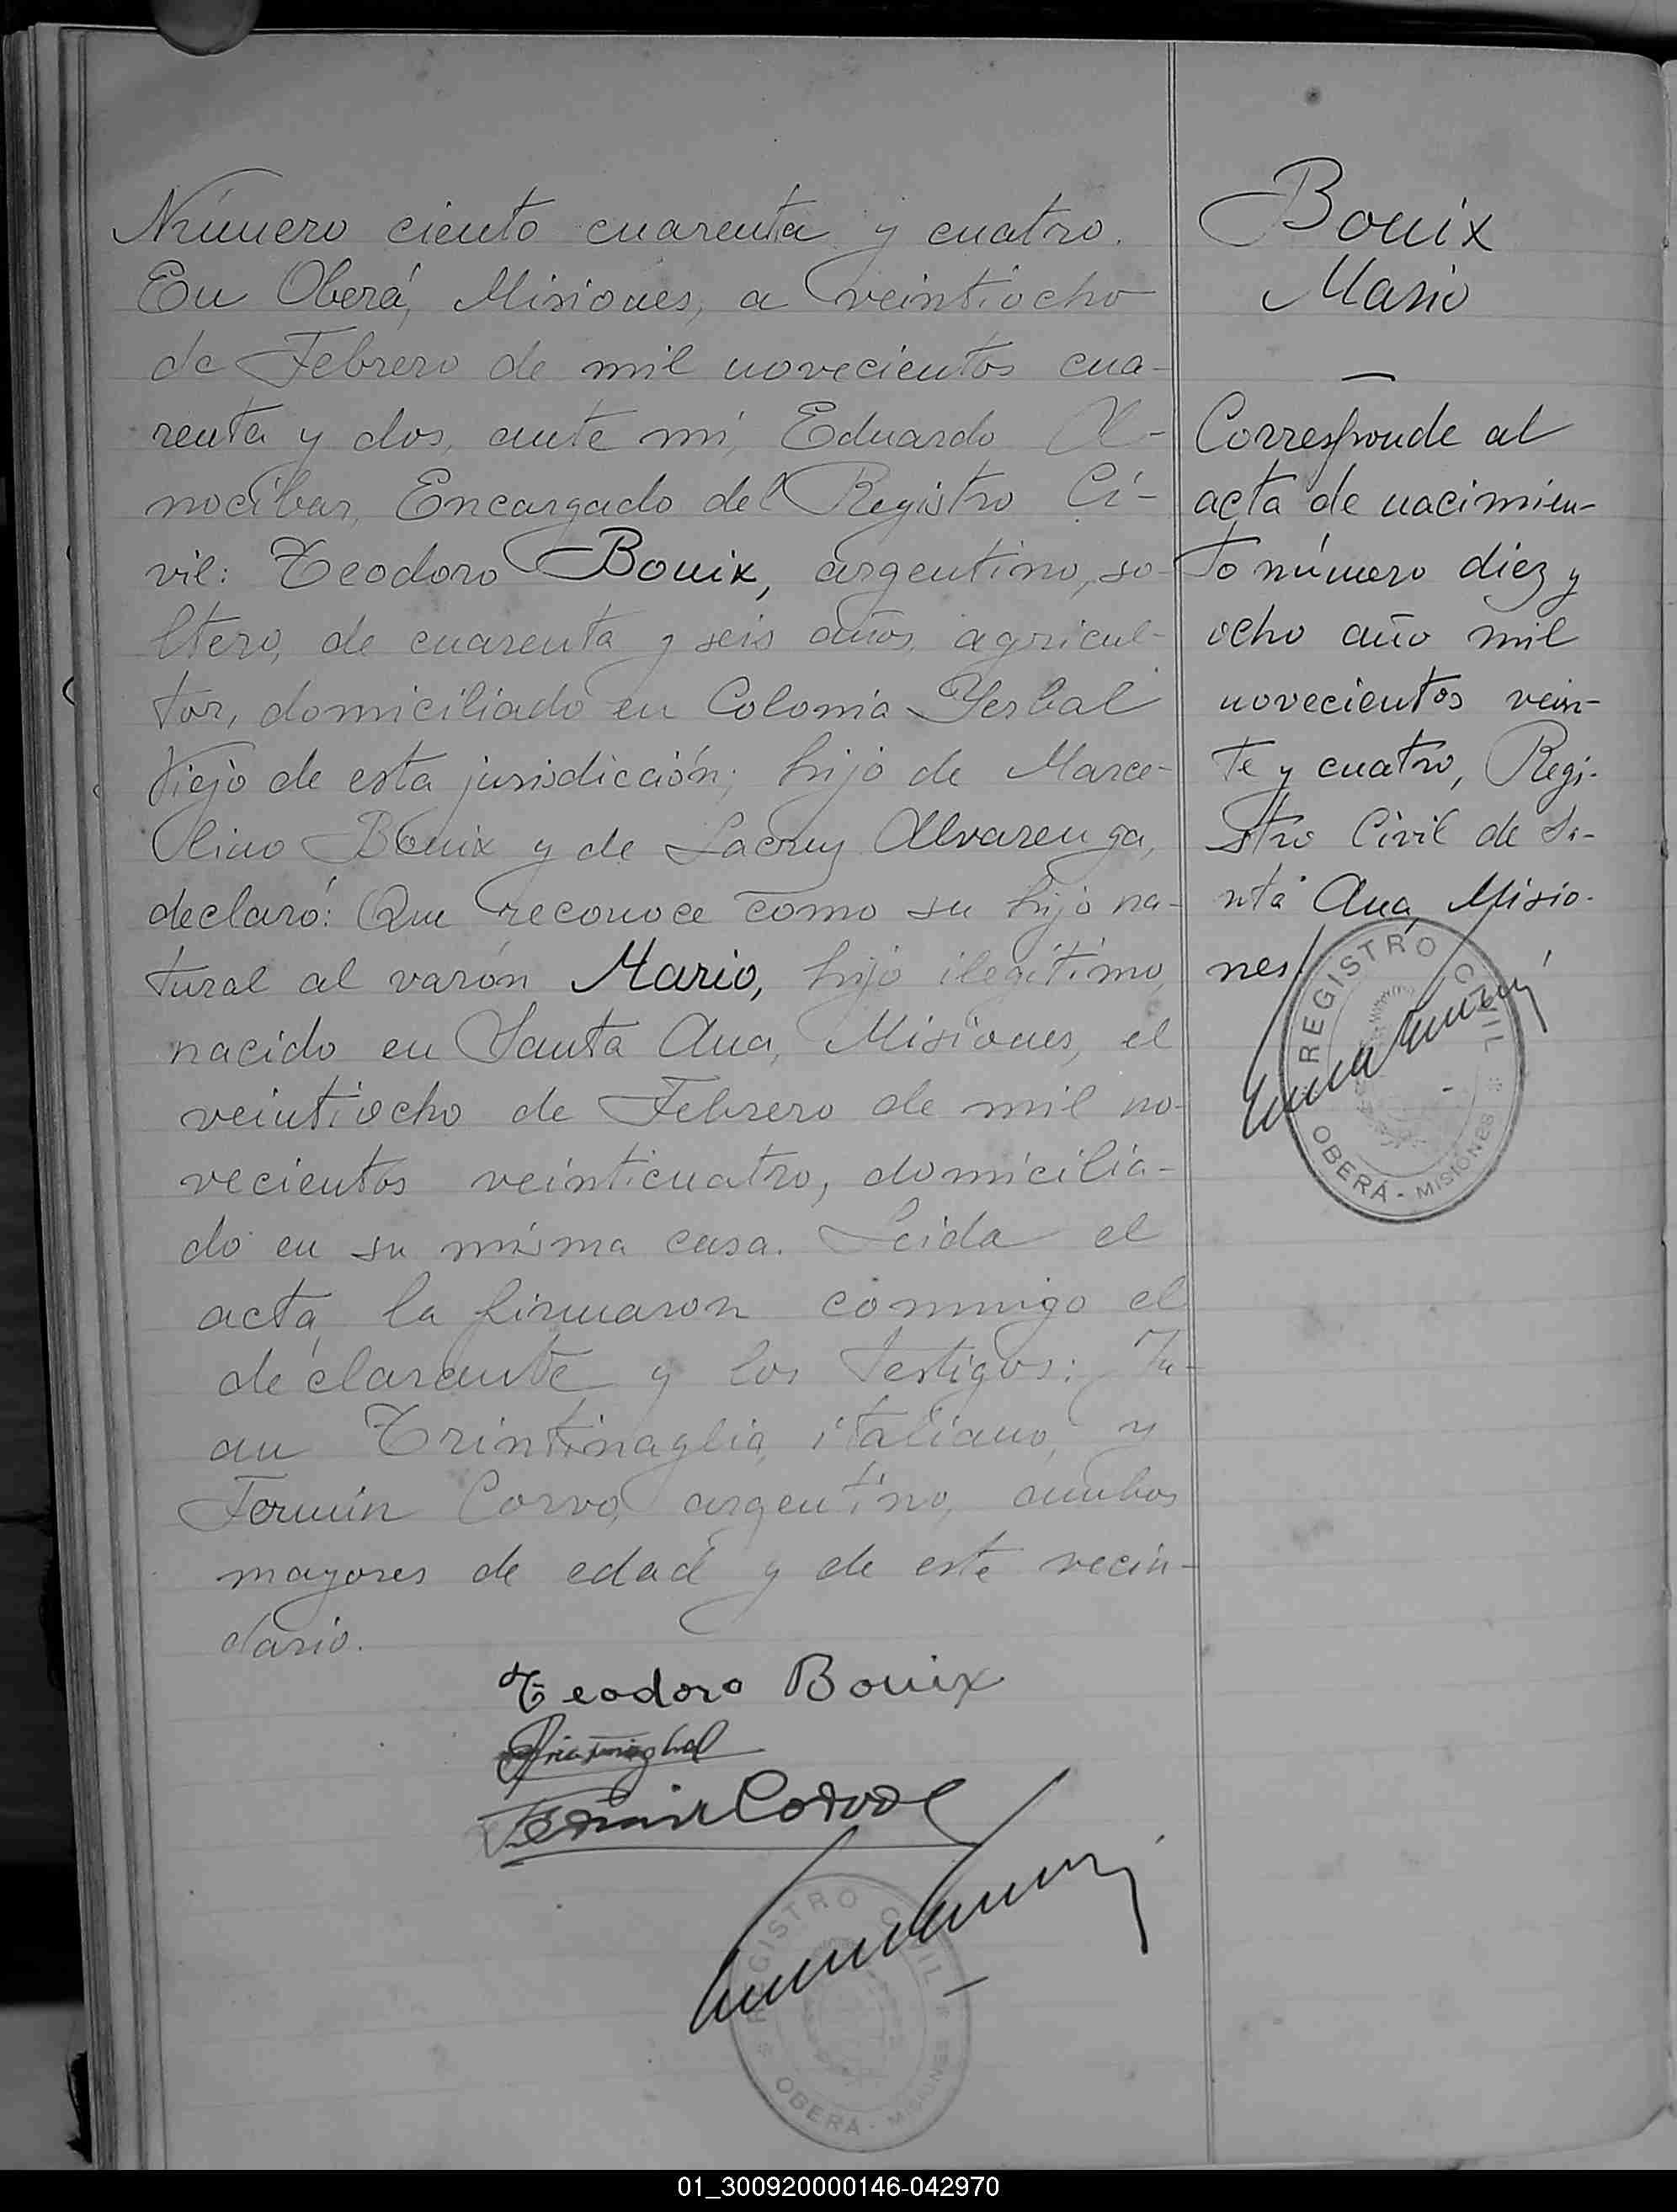 Número ciento cuarenta y cuatro.
En Oberá, Misiones, a veintiocho
de Febrero de mil novecientos cua-
renta y dos, ante mí, Eduardo A-
nocíbar, Encargado del Registro Ci-
vil: Teodoro Bouix, argentino, so-
ltero, de cuarenta y seis años, agricul-
tor, domiciliado en Colonia Yerbal
Viejo de esta jurisdicción; hijo de Marce-
lino Bouix y de Lacruz Alvarenga,
declaró: Que reconoce como su hijo na-
tural al varón Mario, hijo ilegítimo,
nacido en Santa Ana, Misiones, el
veintiocho de Febrero de mil no-
vecientos veinticuatro, domicilia-
do en su misma casa. Leida el
acta, la firmaron conmigo el
declarante y los testigos: Ju-
an Trintinaglia, italiano, y
Fermín Corvo, argentino, ambos
mayores de edad y de este vecin-
dario.
Teodoro Bouix
REGISTRO CIVIL
OBERÁ - MISIONES
Bouix
Mario
Corresponde al
acta de nacimien-
to número diez y
ocho año mil
novecientos vein-
te y cuatro, Regi-
stro Civil de Sa-
nta Ana, Misio-
nes.
REGISTRO CIVIL
OBERÁ - MISIONES
01_300920000146-042970